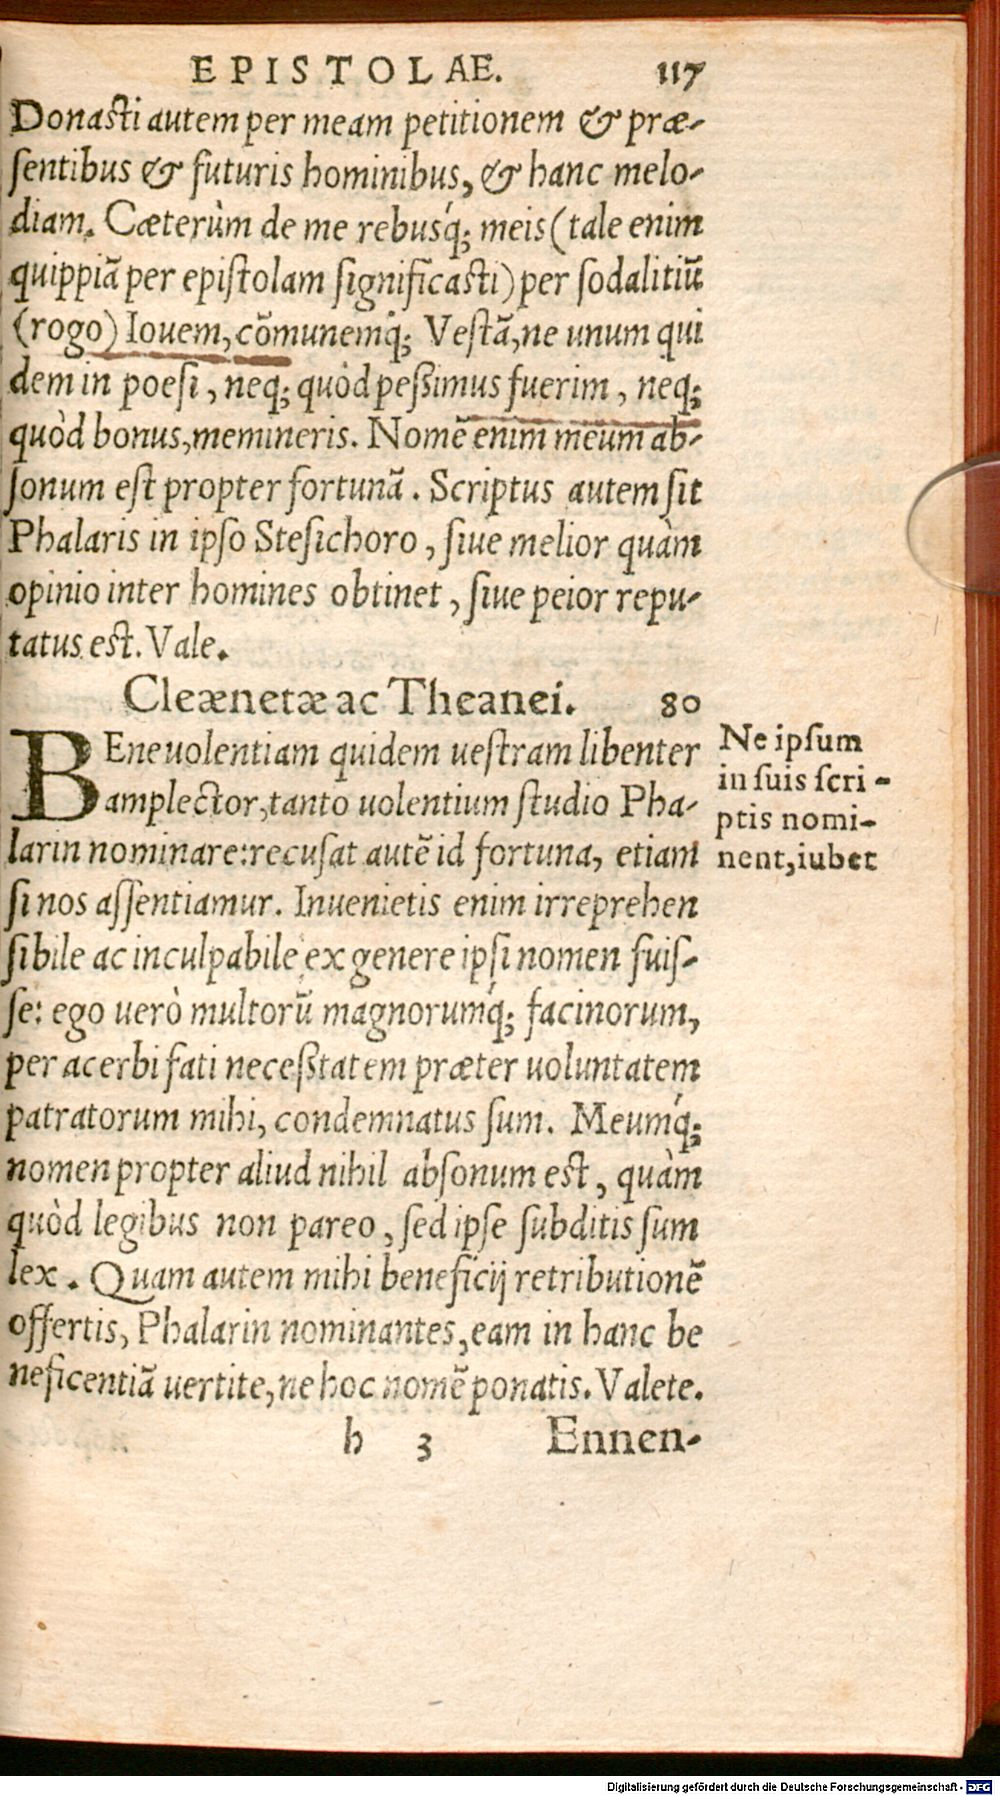 EPISTOLAE. 117
Donasti autem per meam petitionem & præ-
sentibus & futuris hominibus, & hanc melo-
diam. Cæterùm de me rebusq́; meis (tale enim
quippiã per epistolam significasti) per sodalitiũ
(rogo) Iovem, cõmunemq́; Vestã, ne unum qui
dem in poesi, neq; quòd peßimus fuerim, neq;
quòd bonus, memineris. Nomẽ enim meum ab-
sonum est propter fortunã. Scriptus autem sit
Phalaris in ipso Stesichoro, siue melior quàm
opinio inter homines obtinet, siue peior repu-
tatus est. Vale.
Cleænetæ ac Theanei. 80
BEneuolentiam quidem uestram libenter
amplector, tanto uolentium studio Pha-
larin nominare: recusat autẽ id fortuna, etiam
si nos assentiamur. Invenietis enim irreprehen
sibile ac inculpabile ex genere ipsi nomen fuis-
se: ego uerò multorũ magnorumq́; facinorum,
per acerbi fati neceßtatem præter uoluntatem
patratorum mihi, condemnatus sum. Meumq́;
nomen propter aliud nihil absonum est, quàm
quòd legibus non pareo, sed ipse subditis sum
lex. Quam autem mihi beneficij retributionẽ
offertis, Phalarin nominantes, eam in hanc be
neficentiã uertite, ne hoc nomẽ ponatis. Valete.
h 3 Ennen-
Ne ipsum
in suis scri-
ptis nomi-
nent, iubet
Digitalisierung gefördert durch die Deutsche Forschungsgemeinschaft - DFG